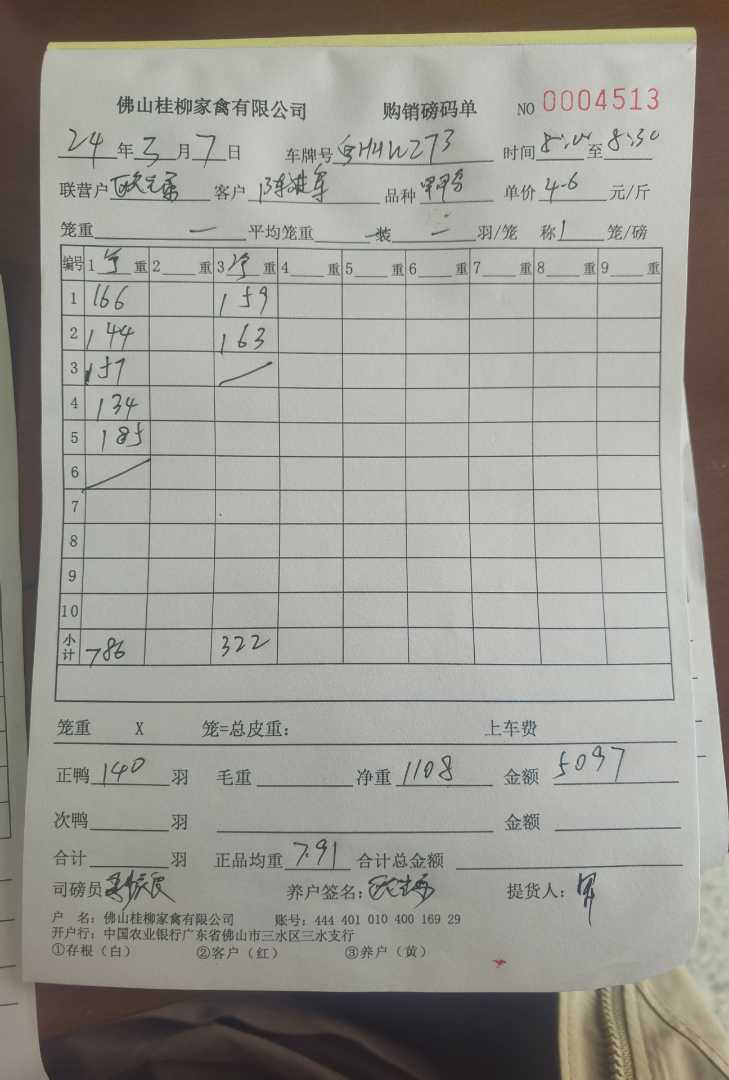 佛山桂柳家禽有限公司 购销磅码单 NO 0004513
24年3月7日 车牌号 273 时间8:00至8:30
联营户 客户 品种 单价4.6元/斤
笼重 — 平均笼重 — 装 — 羽/笼 称1笼/磅
编号 1净重 2 重 3净重 4 重 5 重 6 重 7 重 8 重 9 重
1 166 159
2 144 163
3 157
4 134
5 185
6
7
8
9
10
小计 786 322
笼重 X 笼=总皮重: 上车费
正鸭140羽 毛重 净重1108 金额5097
次鸭 羽 金额
合计 羽 正品均重7.91 合计总金额
司磅员 养户签名: 提货人:
户 名: 佛山桂柳家禽有限公司 账号: 444 401 010 400 169 29
开户行: 中国农业银行广东省佛山市三水区三水支行
①存根(白) ②客户(红) ③养户(黄)